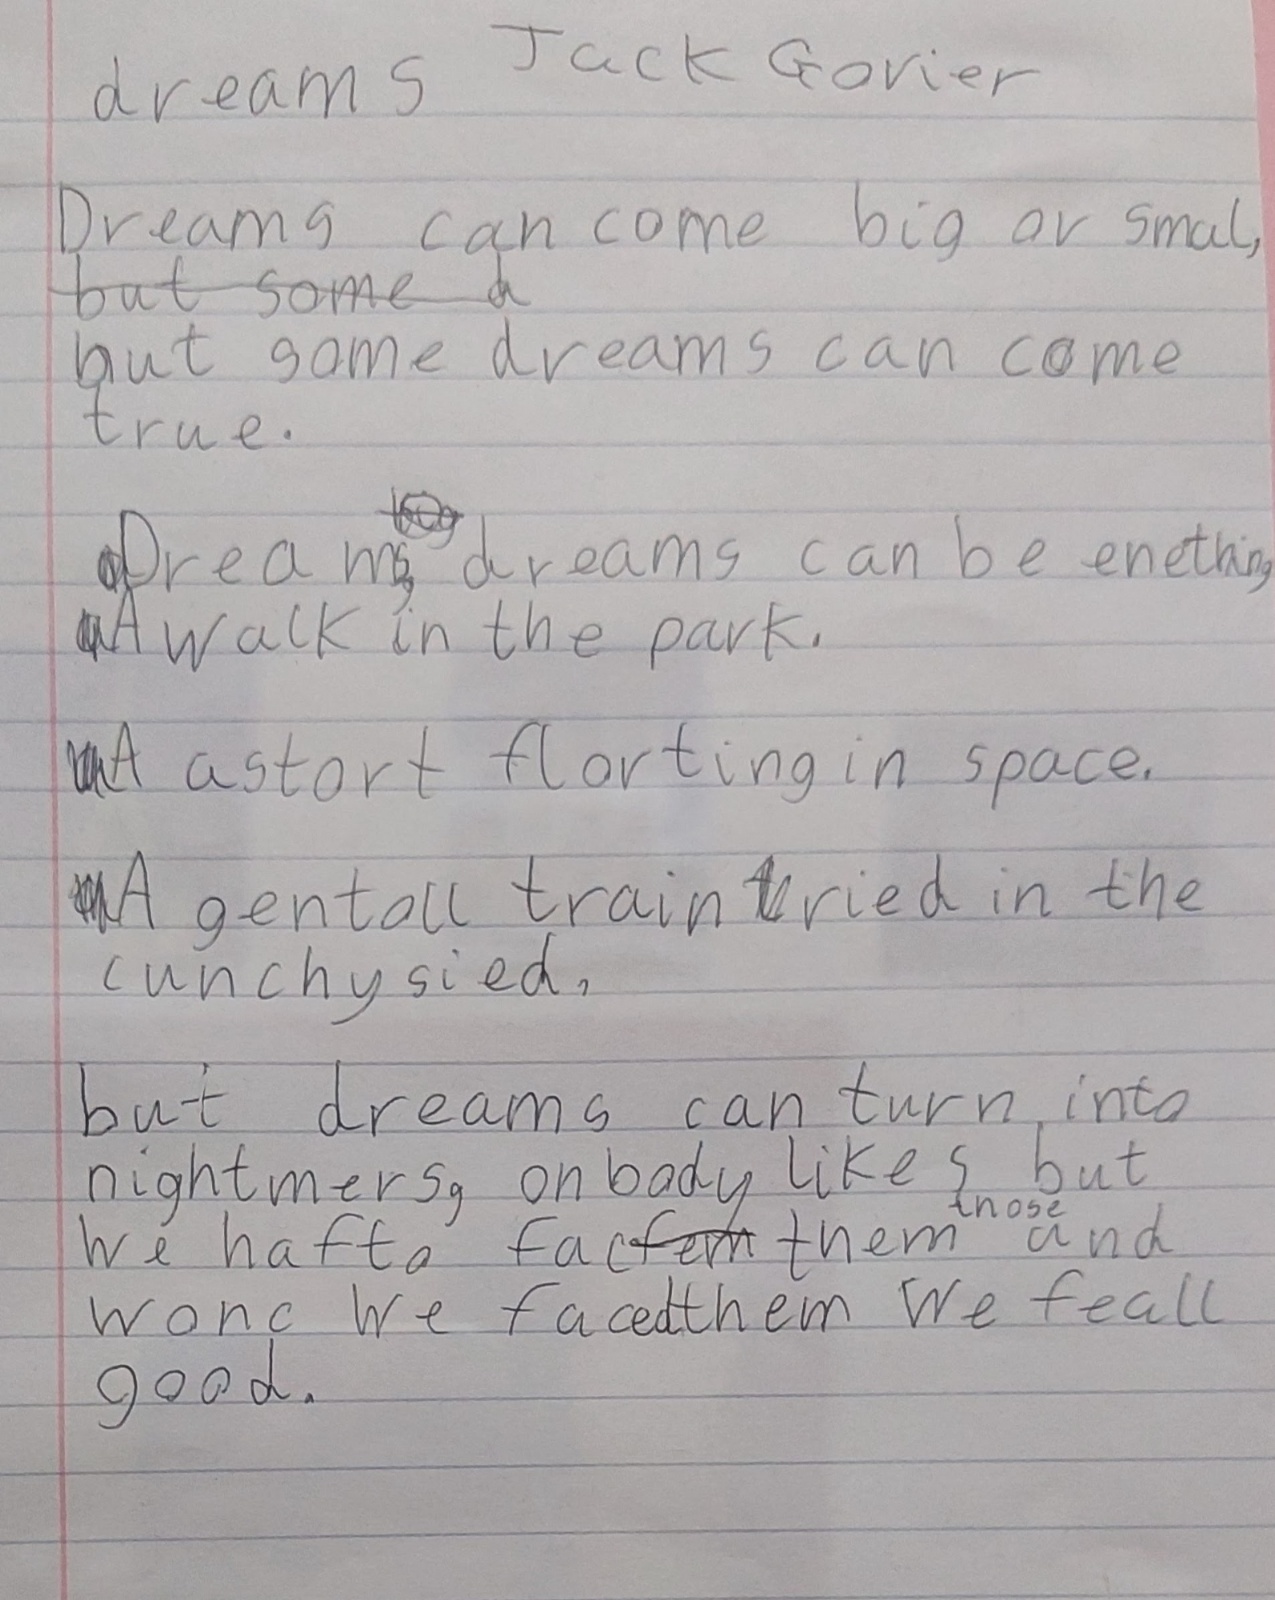 dreams Jack Govier
Dreams can come big or smal,
but some d
but some dreams can come
true.
Dreams, dreams can be enething
A walk in the park.
A astort florting in space.
A gentoll train tried in the
cunchysied,
but dreams can turn into
nightmers, onbody likes but
those
we hafto fac them and
wonc we faced them we feall
good.